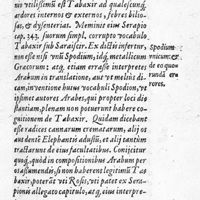 nis utilissimũ est Tabaxir ad quascunq;
ardores internos & externos, febres bilio-
sas, & dysenterias. Meminit eius Serapio
cap. 343. suorum simpl. corrupto vocabulo
Tabaxir sub Saraiscer. Ex dictis infertur,
non esse nisi vnũ Spodium, idq́; metallicum
Græcorum: atq; etiam errasse interpretes
Arabum in translatione, aut vt melius di-
cam, inuentione huius vocabuli Spodion, vt
ipsimet autores Arabes, qui propter loci di-
stantiam, plenam non potuerunt habere co-
gnitionem de Tabaxir. Quidam dicebant
esse radices cannarum crematarum, alij os
aut dentẽ Elephantis adustũ, et ali
tractarunt de eius facultatibus. Conijcitur
quoq́; quòd in compositionibus Arabum per
nos assumendis, si non haberent legitimũ Ta-
baxir, poterũt vti Rosis, vti patet ex Sera-
pionis allegato capitulo, atq; eius interpre-
Spodium
vnicum: &
de eo quæ
rundã er-
rores.